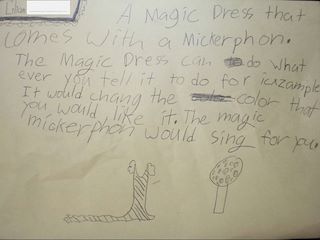 Lillian
A Magic Dress that
comes with a Mickerphon.
The Magic Dress can do what
ever you tell it to do for icxzample
It would chang the color that
you would like it. The magic
mickerphon would sing for you.